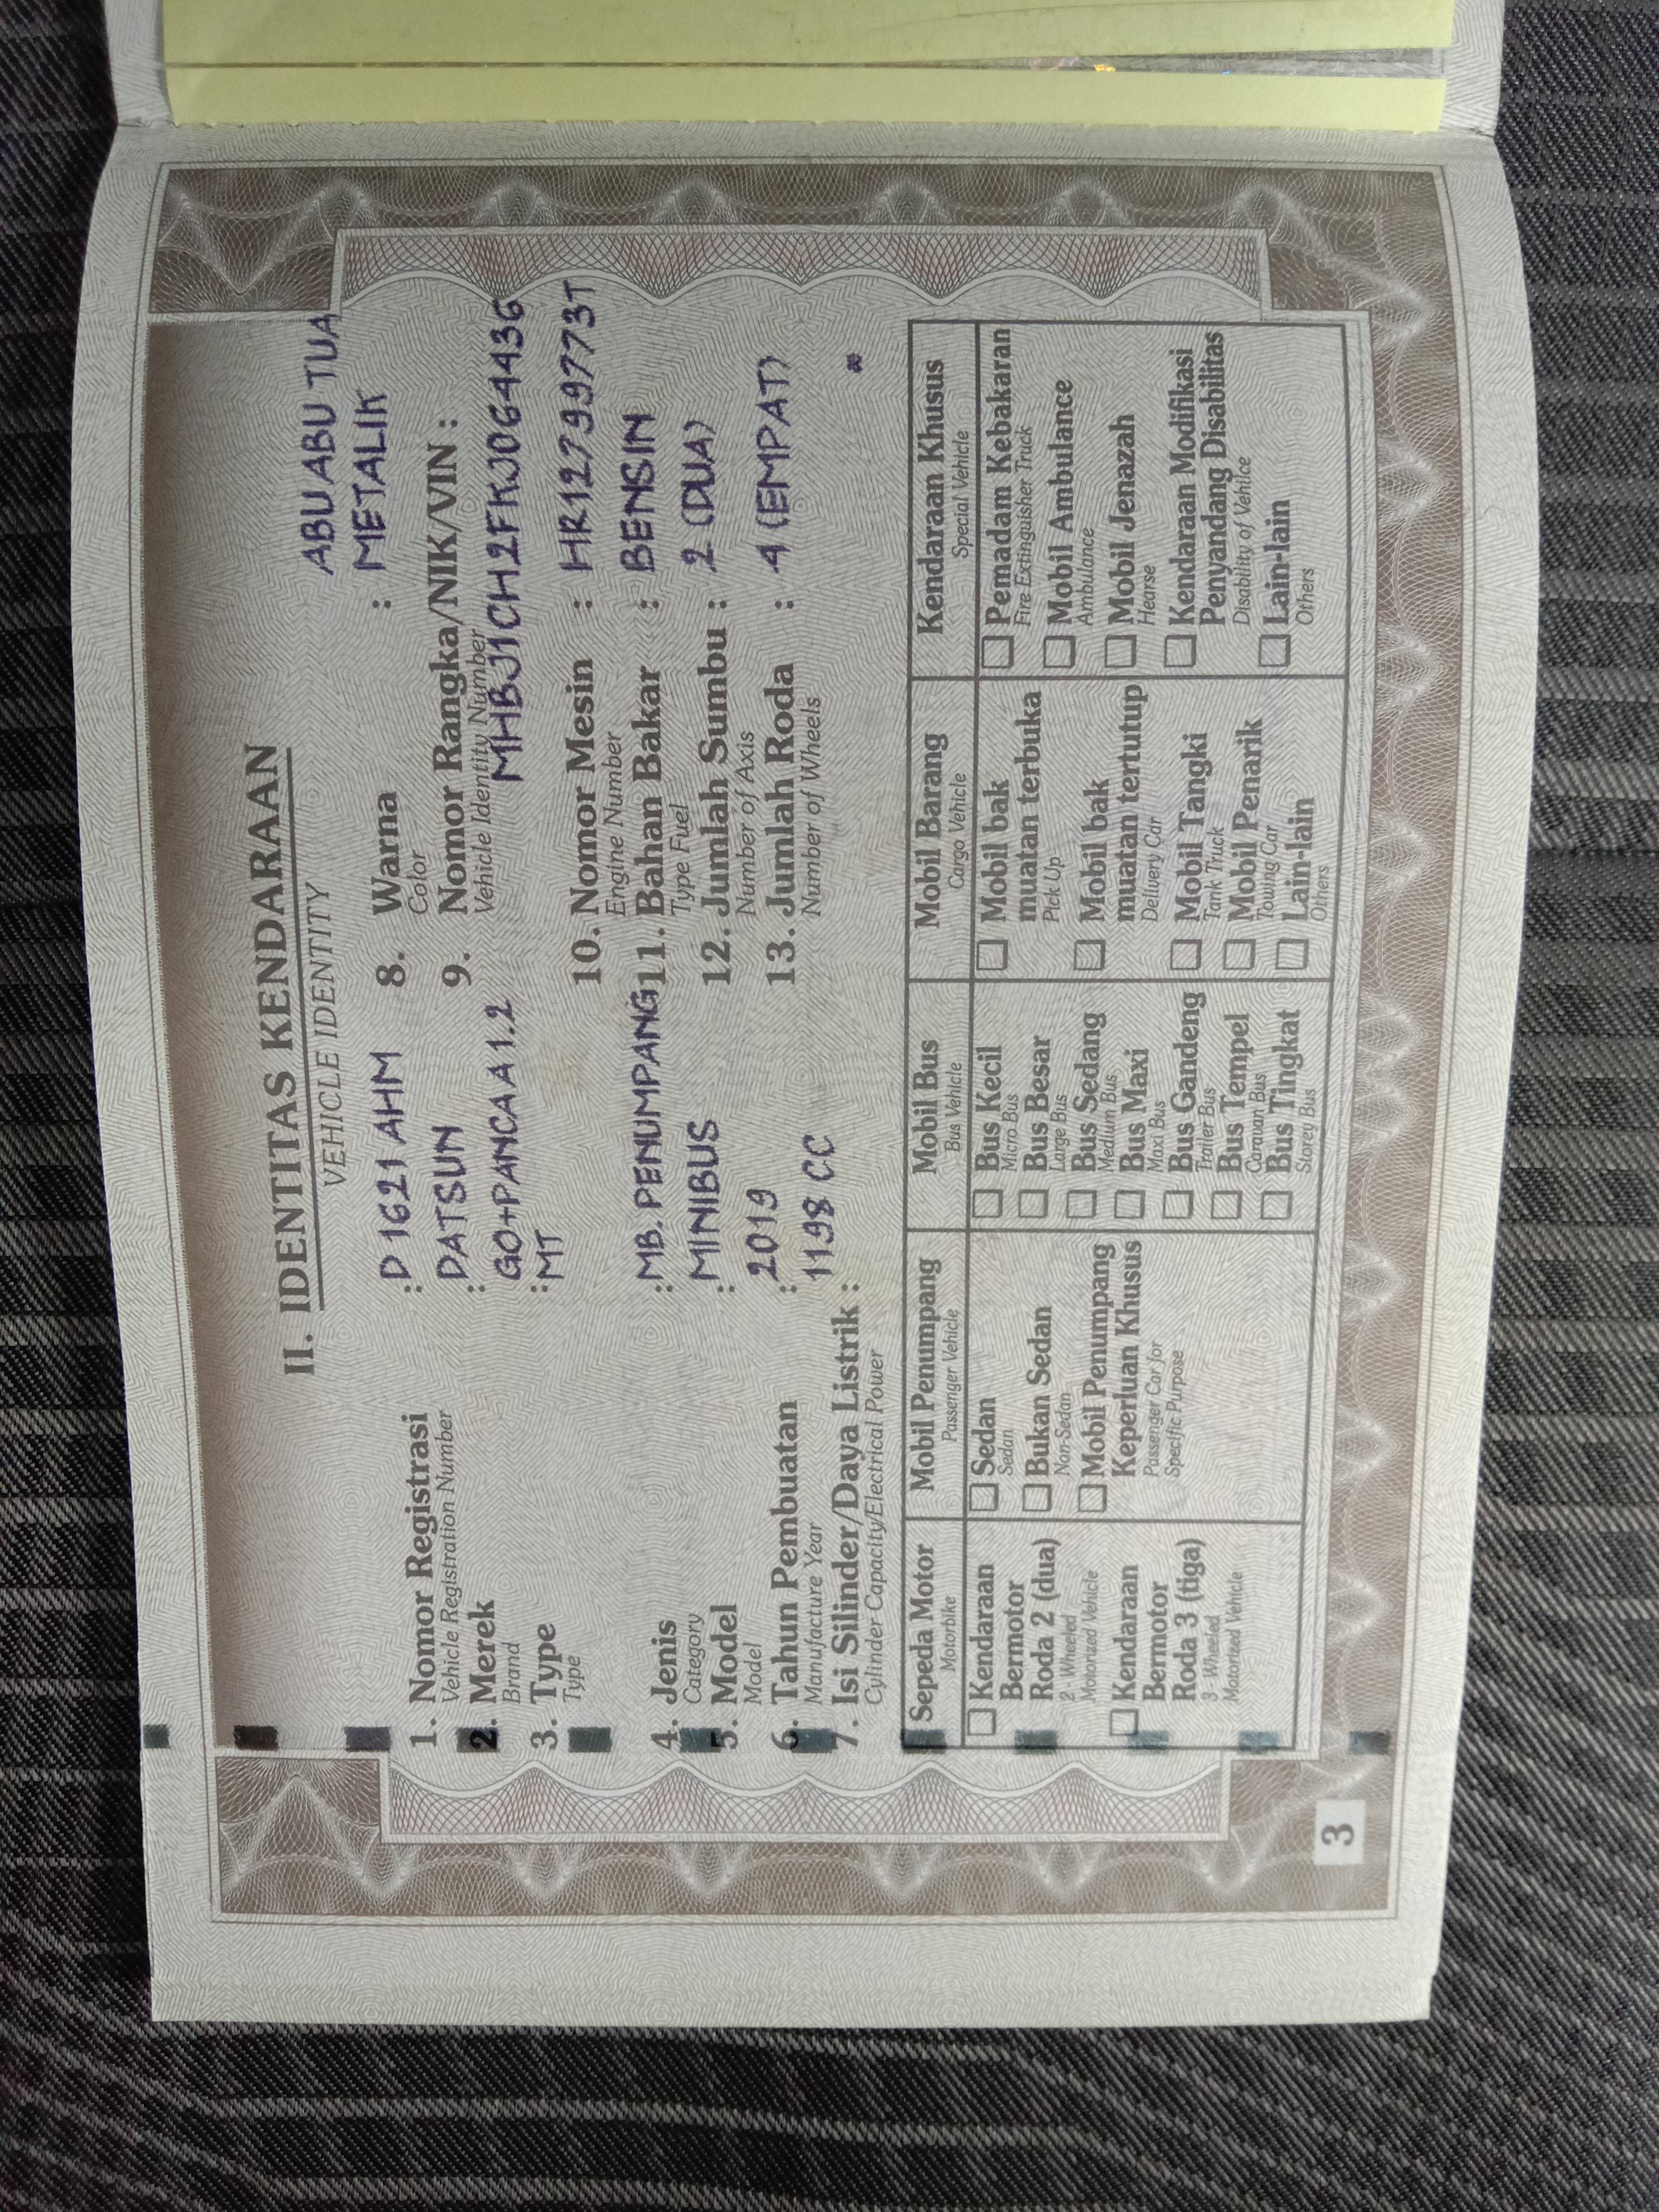 II. IDENTITAS KENDARAAN
VEHICLE IDENTITY
1. Nomor Registrasi : D 1621 AHM
Vehicle Registration Number
2. Merek : DATSUN
Brand
3. Type : GO+PANCA A 1.2
Type MT
4. Jenis : MB. PENUMPANG
Category
5. Model : MINIBUS
Model
6. Tahun Pembuatan : 2019
Manufacture Year
7. Isi Silinder/Daya Listrik : 1198 CC
Cylinder Capacity/Electrical Power
ABU ABU TUA
8. Warna : METALIK
Color
9. Nomor Rangka/NIK/VIN :
Vehicle Identity Number
MHBJ1CH2FKJ064436
10. Nomor Mesin : HR12799773T
Engine Number
11. Bahan Bakar : BENSIN
Type Fuel
12. Jumlah Sumbu : 2 (DUA)
Number of Axis
13. Jumlah Roda : 4 (EMPAT)
Number of Wheels
Sepeda Motor
Motorbike
Kendaraan
Bermotor
Roda 2 (dua)
2 - Wheeled
Motorized Vehicle
Kendaraan
Bermotor
Roda 3 (tiga)
3 - Wheeled
Motorized Vehicle
Mobil Penumpang
Passenger Vehicle
Sedan
Sedan
Bukan Sedan
Non-Sedan
Mobil Penumpang
Keperluan Khusus
Passenger Car for
Specific Purpose
Mobil Bus
Bus Vehicle
Bus Kecil
Micro Bus
Bus Besar
Large Bus
Bus Sedang
Medium Bus
Bus Maxi
Maxi Bus
Bus Gandeng
Trailer Bus
Bus Tempel
Caravan Bus
Bus Tingkat
Storey Bus
Mobil Barang
Cargo Vehicle
Mobil bak
muatan terbuka
Pick Up
Mobil bak
muatan tertutup
Delivery Car
Mobil Tangki
Tank Truck
Mobil Penarik
Towing Car
Lain-lain
Others
Kendaraan Khusus
Special Vehicle
Pemadam Kebakaran
Fire Extinguisher Truck
Mobil Ambulance
Ambulance
Mobil Jenazah
Hearse
Kendaraan Modifikasi
Penyandang Disabilitas
Disability of Vehilce
Lain-lain
Others
3